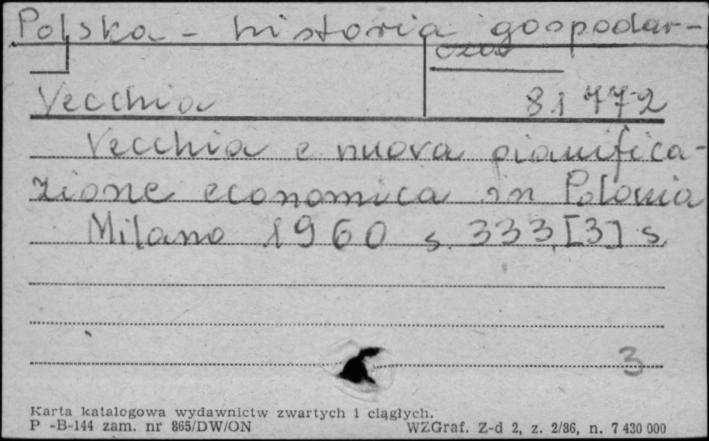 Polska - historia gospodar-
cza
Vecchia 81 772
Vecchia e nuova pianifica-
zione economica in Polonia
Milano 1960 s. 333, [3] s.
3
Karta katalogowa wydawnictw zwartych i ciągłych.
P -B-144 zam. nr 865/DW/ON WZGraf. Z-d 2, z. 2/86, n. 7 430 000